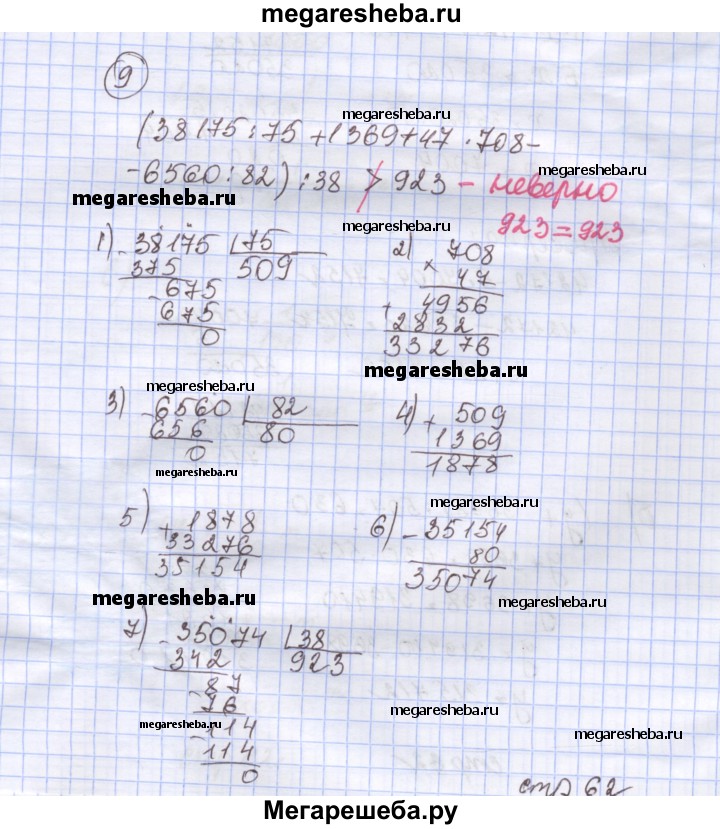 megaresheba.ru
9
megaresheba.ru
(38175:75+1369+47·708-
-6560:82):38 > 923 - неверно
megaresheba.ru
megaresheba.ru
megaresheba.ru
923=923
1) -38175 75
375 509
-675
675
0
2) 708
× 47
+4956
2832
33276
megaresheba.ru
megaresheba.ru
3) -6560 82
656 80
0
megaresheba.ru
4) + 509
1369
1878
megaresheba.ru
5) +1878
33276
35154
6) -35154
80
35074
megaresheba.ru
megaresheba.ru
7) -35074 38
342 923
-87
76
megaresheba.ru
megaresheba.ru
-114
114
0
стр 62
Мегарешеба.ру